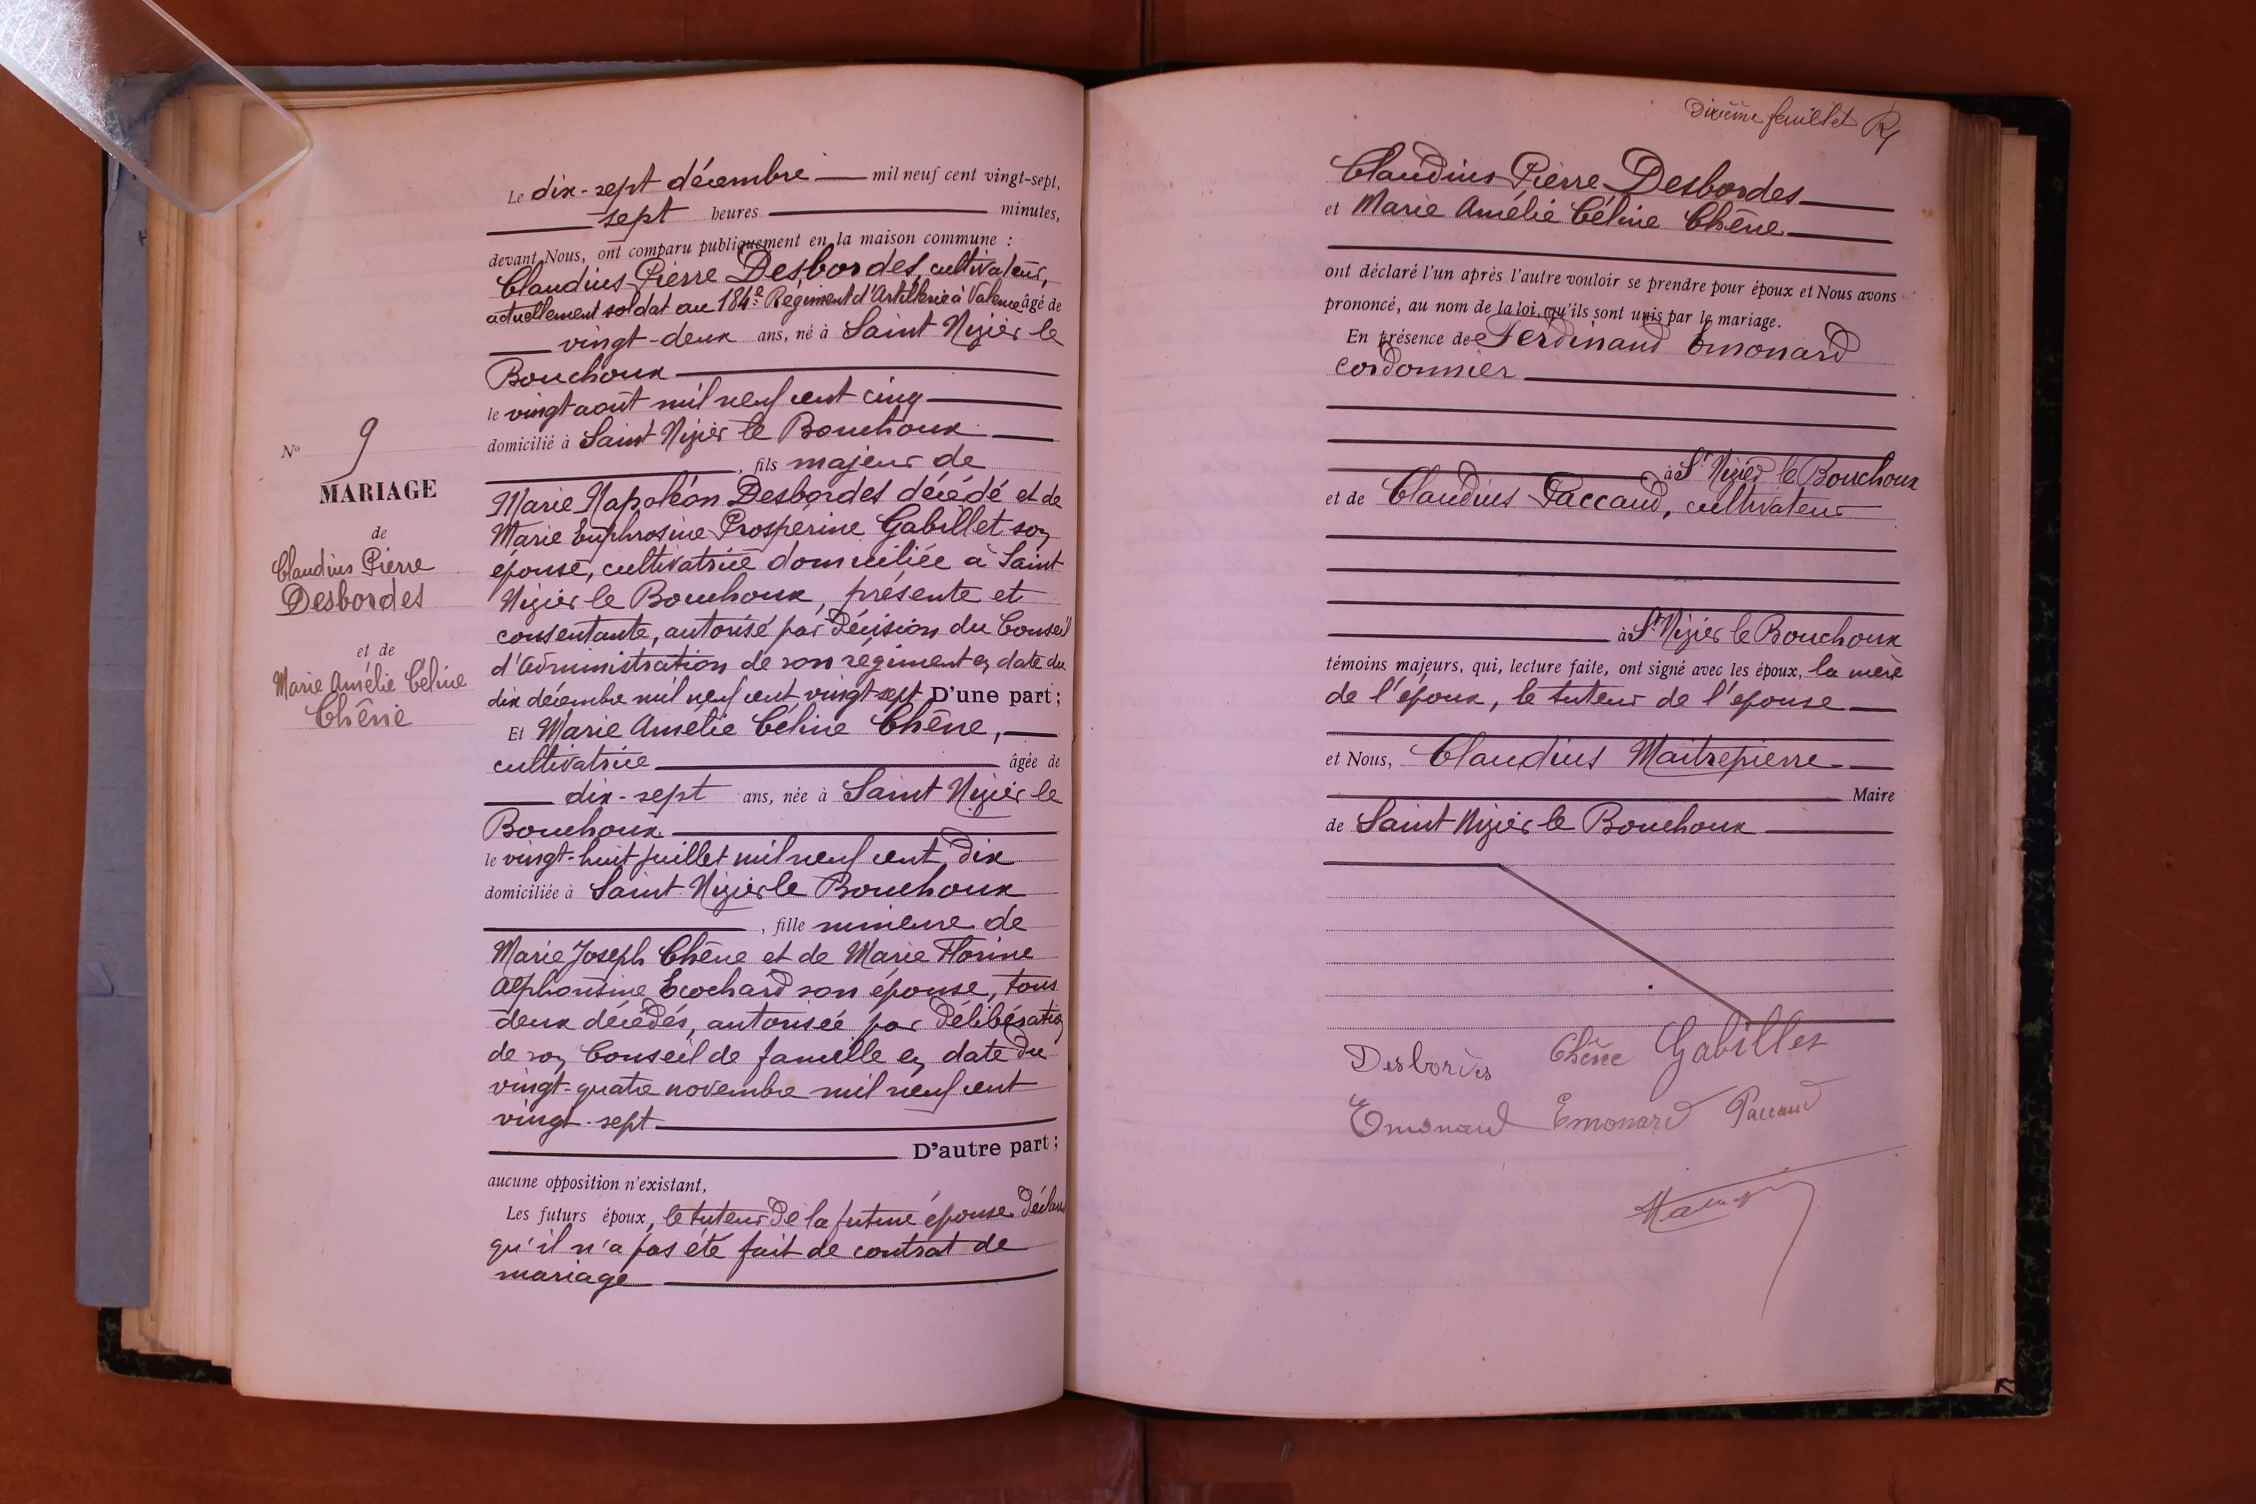 N° 9
MARIAGE
de
Claudius Pierre
Desbordes
et de
Marie Amélie Céline
Chêne
Le dix-sept décembre mil neuf cent vingt-sept,
sept heures minutes,
devant Nous, ont comparu publiquement en la maison commune :
Claudius Pierre Desbordes, cultivateur,
actuellement soldat au 184e Régiment d'Artillerie à Valence âgé de
vingt-deux ans, né à Saint Nizier le
Bouchoux
le vingt août mil neuf cent cinq
domicilié à Saint Nizier le Bouchoux
, fils majeur de
Marie Napoléon Desbordes décédé et de
Marie Euphrosine Prosperine Gabillet son
épouse, cultivatrice domiciliée à Saint
Nizier le Bouchoux, présente et
consentante, autorisé par décision du Conseil
d'administration de son régiment en date du
dix décembre mil neuf cent vingt-sept D'une part ;
Et Marie Amélie Céline Chêne,
cultivatrice âgée de
dix-sept ans, née à Saint Nizier le
Bouchoux
le vingt-huit juillet mil neuf cent dix
domiciliée à Saint Nizier le Bouchoux
, fille mineure de
Marie Joseph Chêne et de Marie Florine
Alphonsine Ecochard son épouse, tous
deux décédés, autorisée par délibération
de son Conseil de famille en date du
vingt-quatre novembre mil neuf cent
vingt-sept
D'autre part ;
aucune opposition n'existant,
Les futurs époux, le tuteur de la future épouse déclarent
qu'il n'a pas été fait de contrat de
mariage
Dixième feuillet
Claudius Pierre Desbordes
et Marie Amélie Céline Chêne
ont déclaré l'un après l'autre vouloir se prendre pour époux et Nous avons
prononcé, au nom de la loi, qu'ils sont unis par le mariage.
En présence de Ferdinand Emonard
cordonnier
à St Nizier le Bouchoux
et de Claudius Paccaud, cultivateur
à St Nizier le Bouchoux
témoins majeurs, qui, lecture faite, ont signé avec les époux, la mère
de l'époux, le tuteur de l'epouse
et Nous, Claudius Maitrepierre
Maire
de Saint Nizier le Bouchoux
Desbordes Chêne Gabillet
Emonard Emonard Paccaud